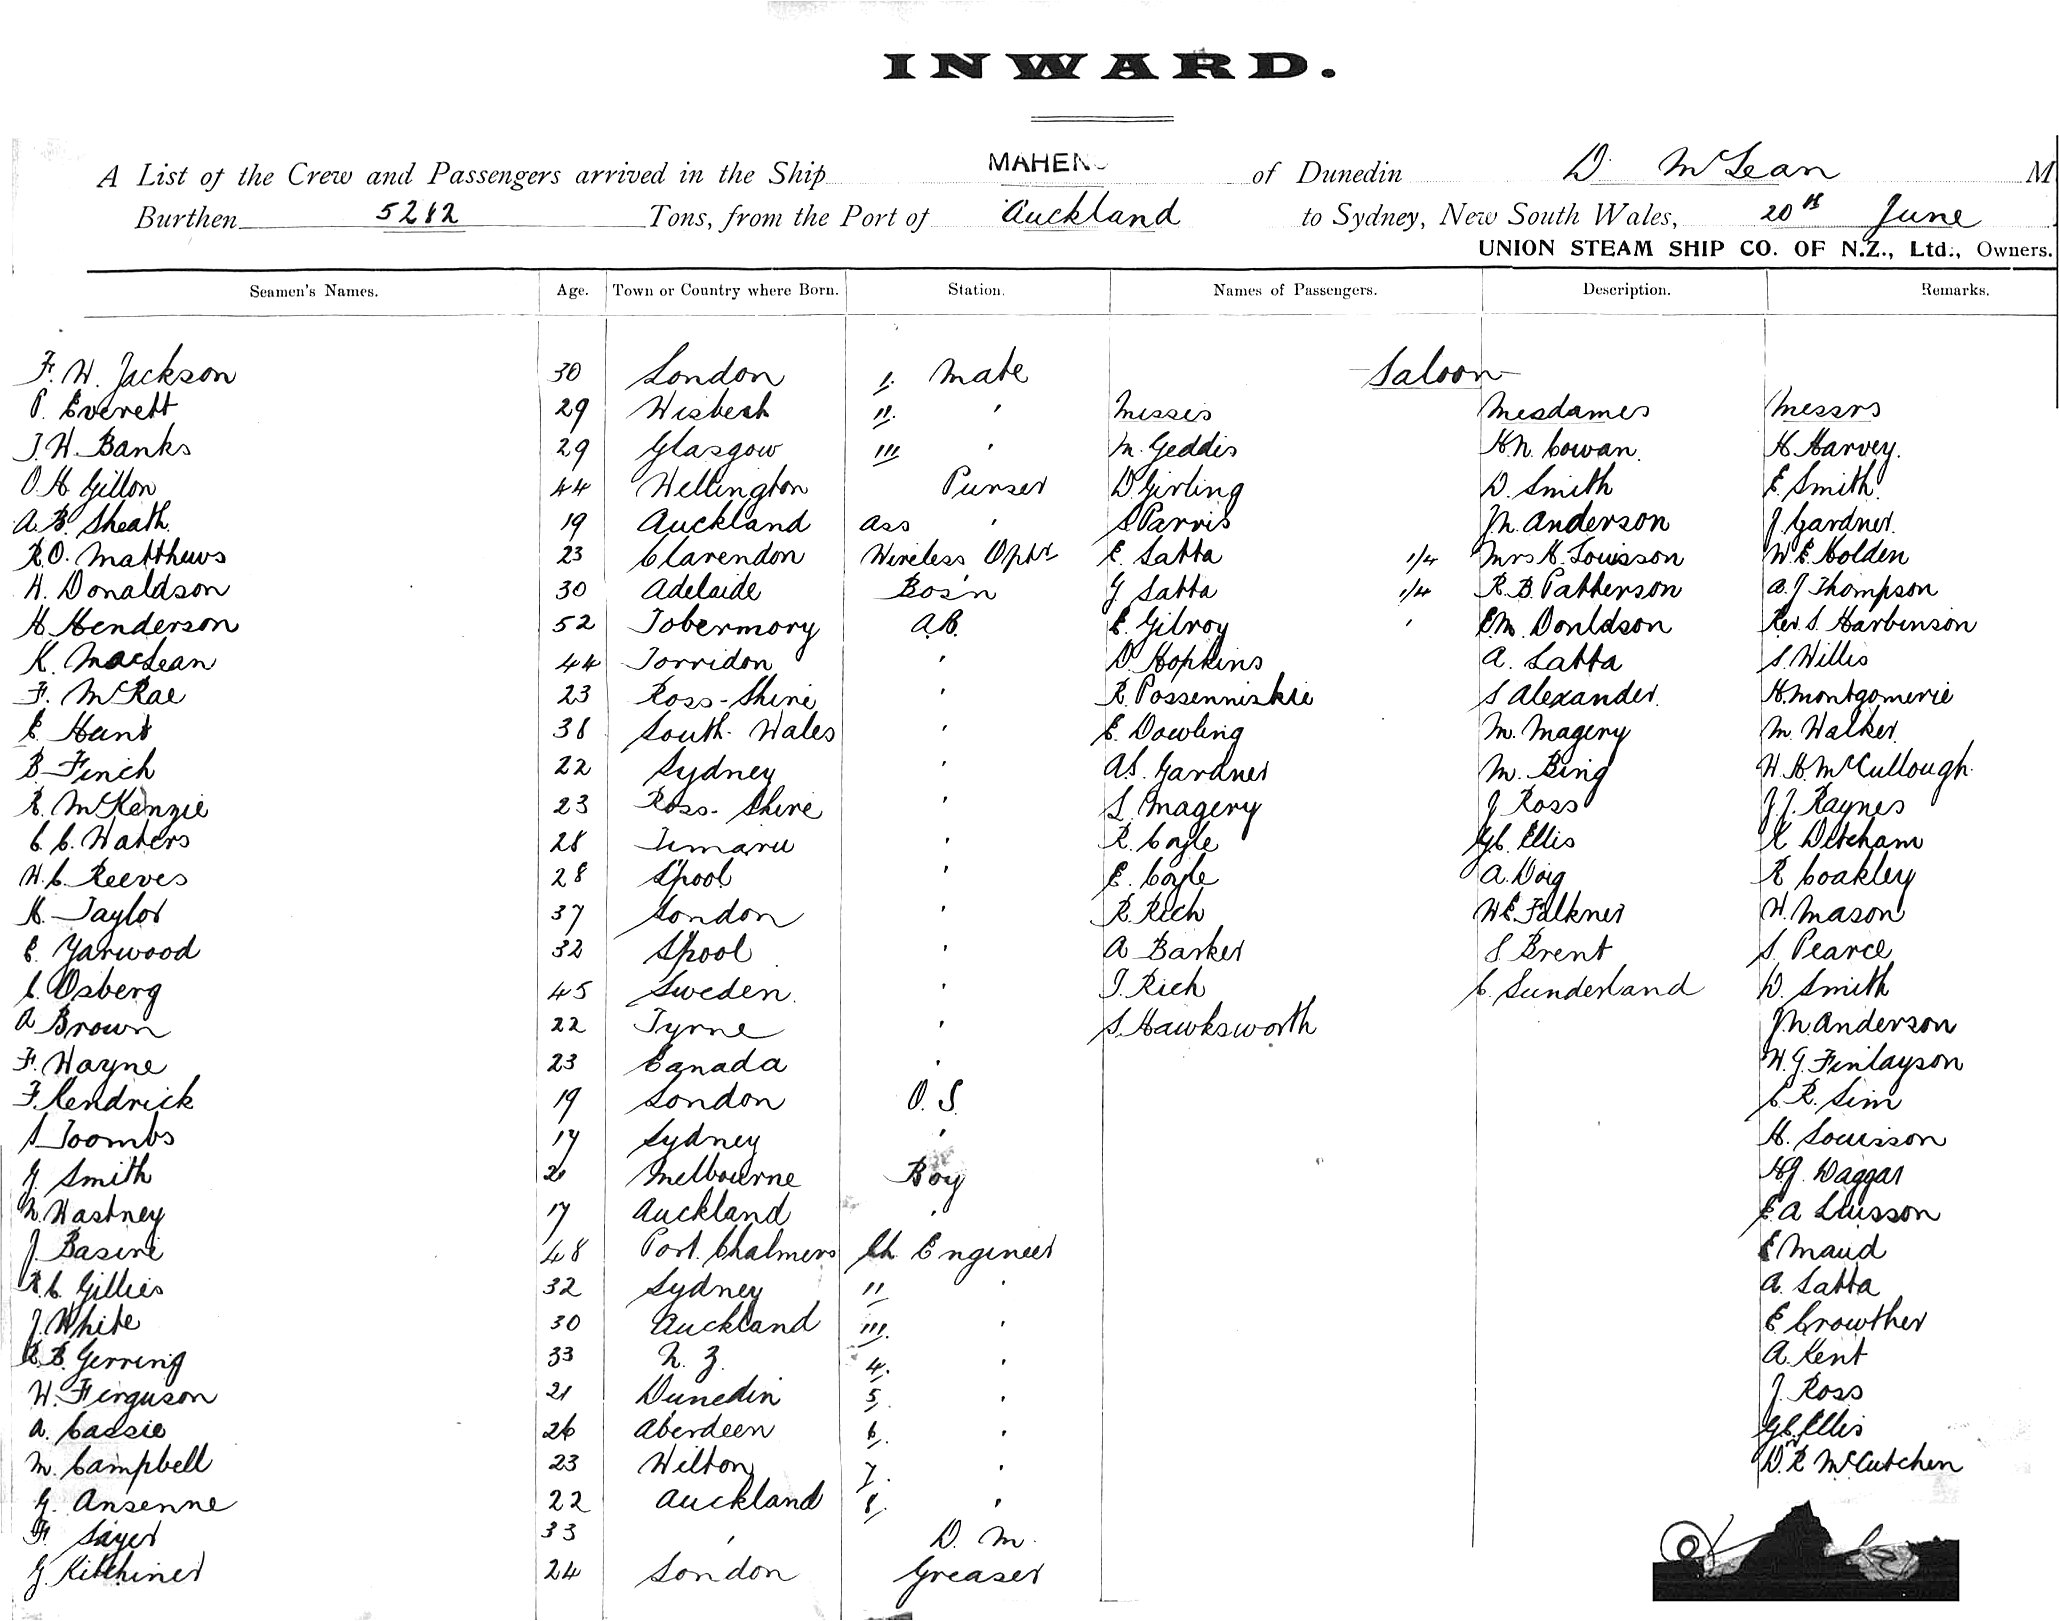 INWARD.
A List of the Crew and Passengers arrived in the Ship MAHENO of Dunedin D. McLean M
Burthen 5282 Tons, from the Port of Auckland to Sydney, New South Wales, 20th June
UNION STEAM SHIP CO. OF N.Z., Ltd., Owners.
Seamen's Names. Age. Town or Country where Born. Station. Names of Passengers. Description. Remarks.
F. W. Jackson 30 London 1. Mate Saloon
P. Everett 29 Wisbech 11. ' Misses Mesdames Messrs
J. W. Banks 29 Glasgow 111. ' M. Geddis H. N. Cowan. H Harvey.
O. H Gillon 44 Wellington Purser D. Girling D. Smith E. Smith.
A. B. Sheath. 19 Auckland Ass ' S Parris J N. Anderson J Gardner.
R. O. Matthews 23 Clarendon Wireless Optr E. Latta 1/4 Mrs H. Louisson W. E. Holden
H. Donaldson 30 Adelaide Bos'n J Latta 1/4 R. B. Patterson A. J Thompson
H Henderson 52 Tobermory A.B. E. Gilroy ' E M. Donldson Rev. S Harbinson
K. MacLean 44 Torridon ' D. Hopkins A. Latta S. Willis
F. McRae 23 Ross-Shire ' R. Possenniskie S Alexander. H. Montgomerie
E. Hunt 38 South-Wales ' E. Dowling M. Magery M. Walker
B Finch 22 Sydney ' A. S. Gardner M. Bing W. H. McCullough.
R. McKenzie 23 Ross-Shire ' L. Magery J Ross J. J. Raynes
C. C. Waters 28 Timaru ' R. Coyle G C. Ellis K Ditcham
W. C. Reeves 28 L'pool ' E. Coyle A. Doig R Coakley
H. Taylor 37 London ' R. Rich W E. Falkner W. Mason
E. Yarwood 32 L'pool ' A Barker S Brent S. Pearce
C. Osberg 45 Sweden. ' J. Rich C. Sunderland D. Smith
A Brown 22 Tyrne ' S. Hawksworth J. N. Anderson
F. Wayne 23 Canada ' W. G. Finlayson
F. Kendrick 19 London O. S. C. R. Sim
S Toombs 17 Sydney ' H. Louisson
J Smith Melbourne Boy H. J. Daggar
N. Wastney 17 Auckland ' E A Louisson
J. Basire 48 Port. Chalmers Ch Engineer E Maud
R. C Gillies 32 Sydney 11 ' A. Latta
J. White 30 Auckland 111. ' E Crowther
R. B. Gerring 33 N. Z. 4. ' A. Kent
W. Ferguson 21 Dunedin 5. ' J. Ross
A. Cassie 26 Aberdeen 6. ' G C. Ellis
M. Campbell 23 Wilton 7. ' Dr R McCutchen
G. Ansenne 22 Auckland 8. '
F. Sayer 33 ' D. M.
G. Kitchiner 24 London Greaser